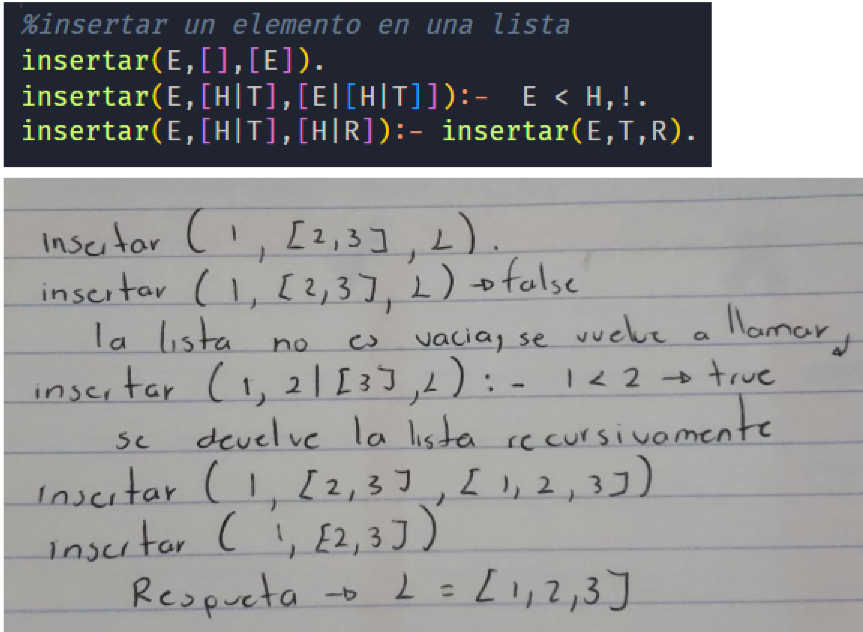 %insertar un elemento en una lista
insertar(E,[],[E]).
insertar(E,[H|T],[E|[H|T]]):-  E < H,!.
insertar(E,[H|T],[H|R]):- insertar(E,T,R).
Insertar ( 1 , [2,3] , L ).
insertar ( 1, [2,3], L ) → false
la lista no es vacia, se vuelve a llamar,
insertar ( 1, 2 | [3] , L ) : - 1 < 2 → true
se devuelve la lista recursivamente
insertar ( 1, [2,3] , [ 1, 2, 3] )
insertar ( 1, [2,3] )
Respueta → L = [ 1, 2, 3]